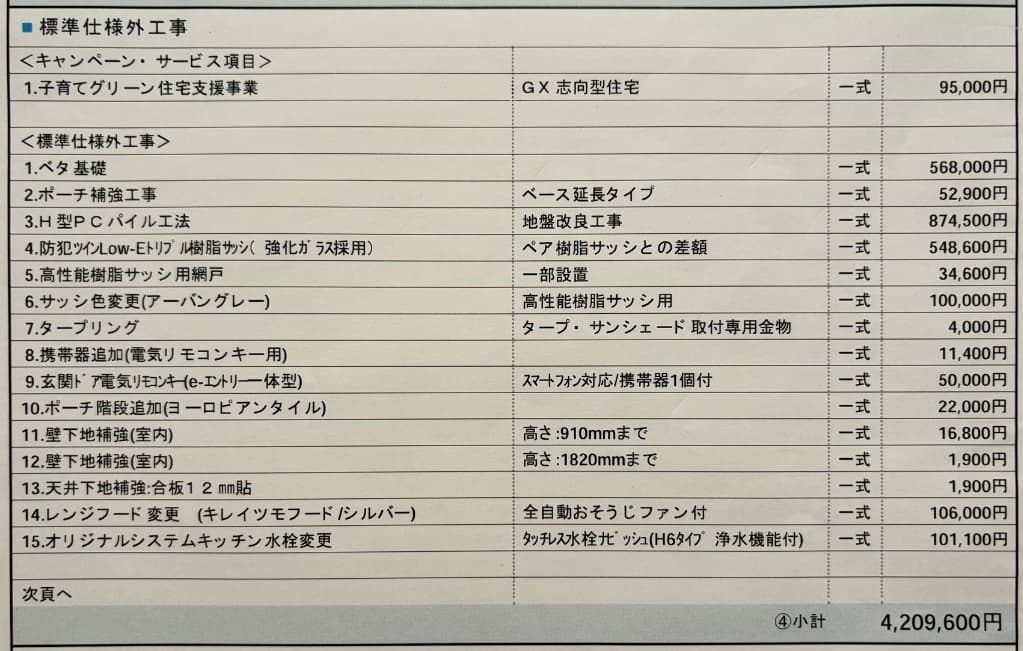 ■ 標準仕様外工事
＜キャンペーン・サービス項目＞
1.子育てグリーン住宅支援事業 ＧＸ志向型住宅 一式 95,000円
＜標準仕様外工事＞
1.ベタ基礎 一式 568,000円
2.ポーチ補強工事 ベース延長タイプ 一式 52,900円
3.Ｈ型ＰＣパイル工法 地盤改良工事 一式 874,500円
4.防犯ﾂｲﾝLow-Eﾄﾘﾌﾟﾙ樹脂ｻｯｼ( 強化ｶﾞﾗｽ採用） ペア樹脂サッシとの差額 一式 548,600円
5.高性能樹脂サッシ用網戸 一部設置 一式 34,600円
6.サッシ色変更(アーバングレー) 高性能樹脂サッシ用 一式 100,000円
7.タープリング タープ・サンシェード取付専用金物 一式 4,000円
8.携帯器追加(電気リモコンキー用) 一式 11,400円
9.玄関ﾄﾞｱ電気ﾘﾓｺﾝｷｰ(e-ｴﾝﾄﾘｰ一体型) ｽﾏｰﾄﾌｫﾝ対応/携帯器1個付 一式 50,000円
10.ポーチ階段追加(ヨーロピアンタイル) 一式 22,000円
11.壁下地補強(室内) 高さ:910mmまで 一式 16,800円
12.壁下地補強(室内) 高さ:1820mmまで 一式 1,900円
13.天井下地補強:合板１２㎜貼 一式 1,900円
14.レンジフード変更 (キレイツモフード/シルバー) 全自動おそうじファン付 一式 106,000円
15.オリジナルシステムキッチン水栓変更 ﾀｯﾁﾚｽ水栓ﾅﾋﾞｯｼｭ(H6ﾀｲﾌﾟ 浄水機能付) 一式 101,100円
次頁へ
④小計 4,209,600円